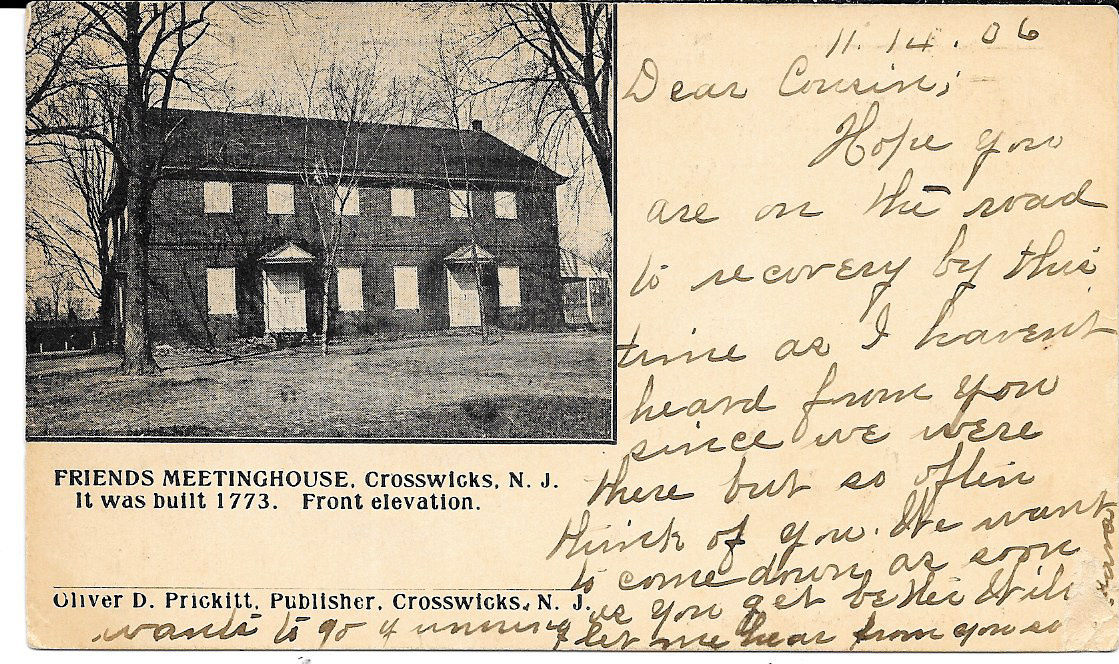 11. 14. 06
Dear Cousin;
Hope you
are on the road
to recovery by this
time as I havent
heard from you
since we were
there but so often
think of you. We want
to come down as soon
as you get better Will
wants to go gunning
let me hear from you so
FRIENDS MEETINGHOUSE, Crosswicks, N. J.
It was built 1773. Front elevation.
Oliver D. Prickitt, Publisher, Crosswicks, N. J.